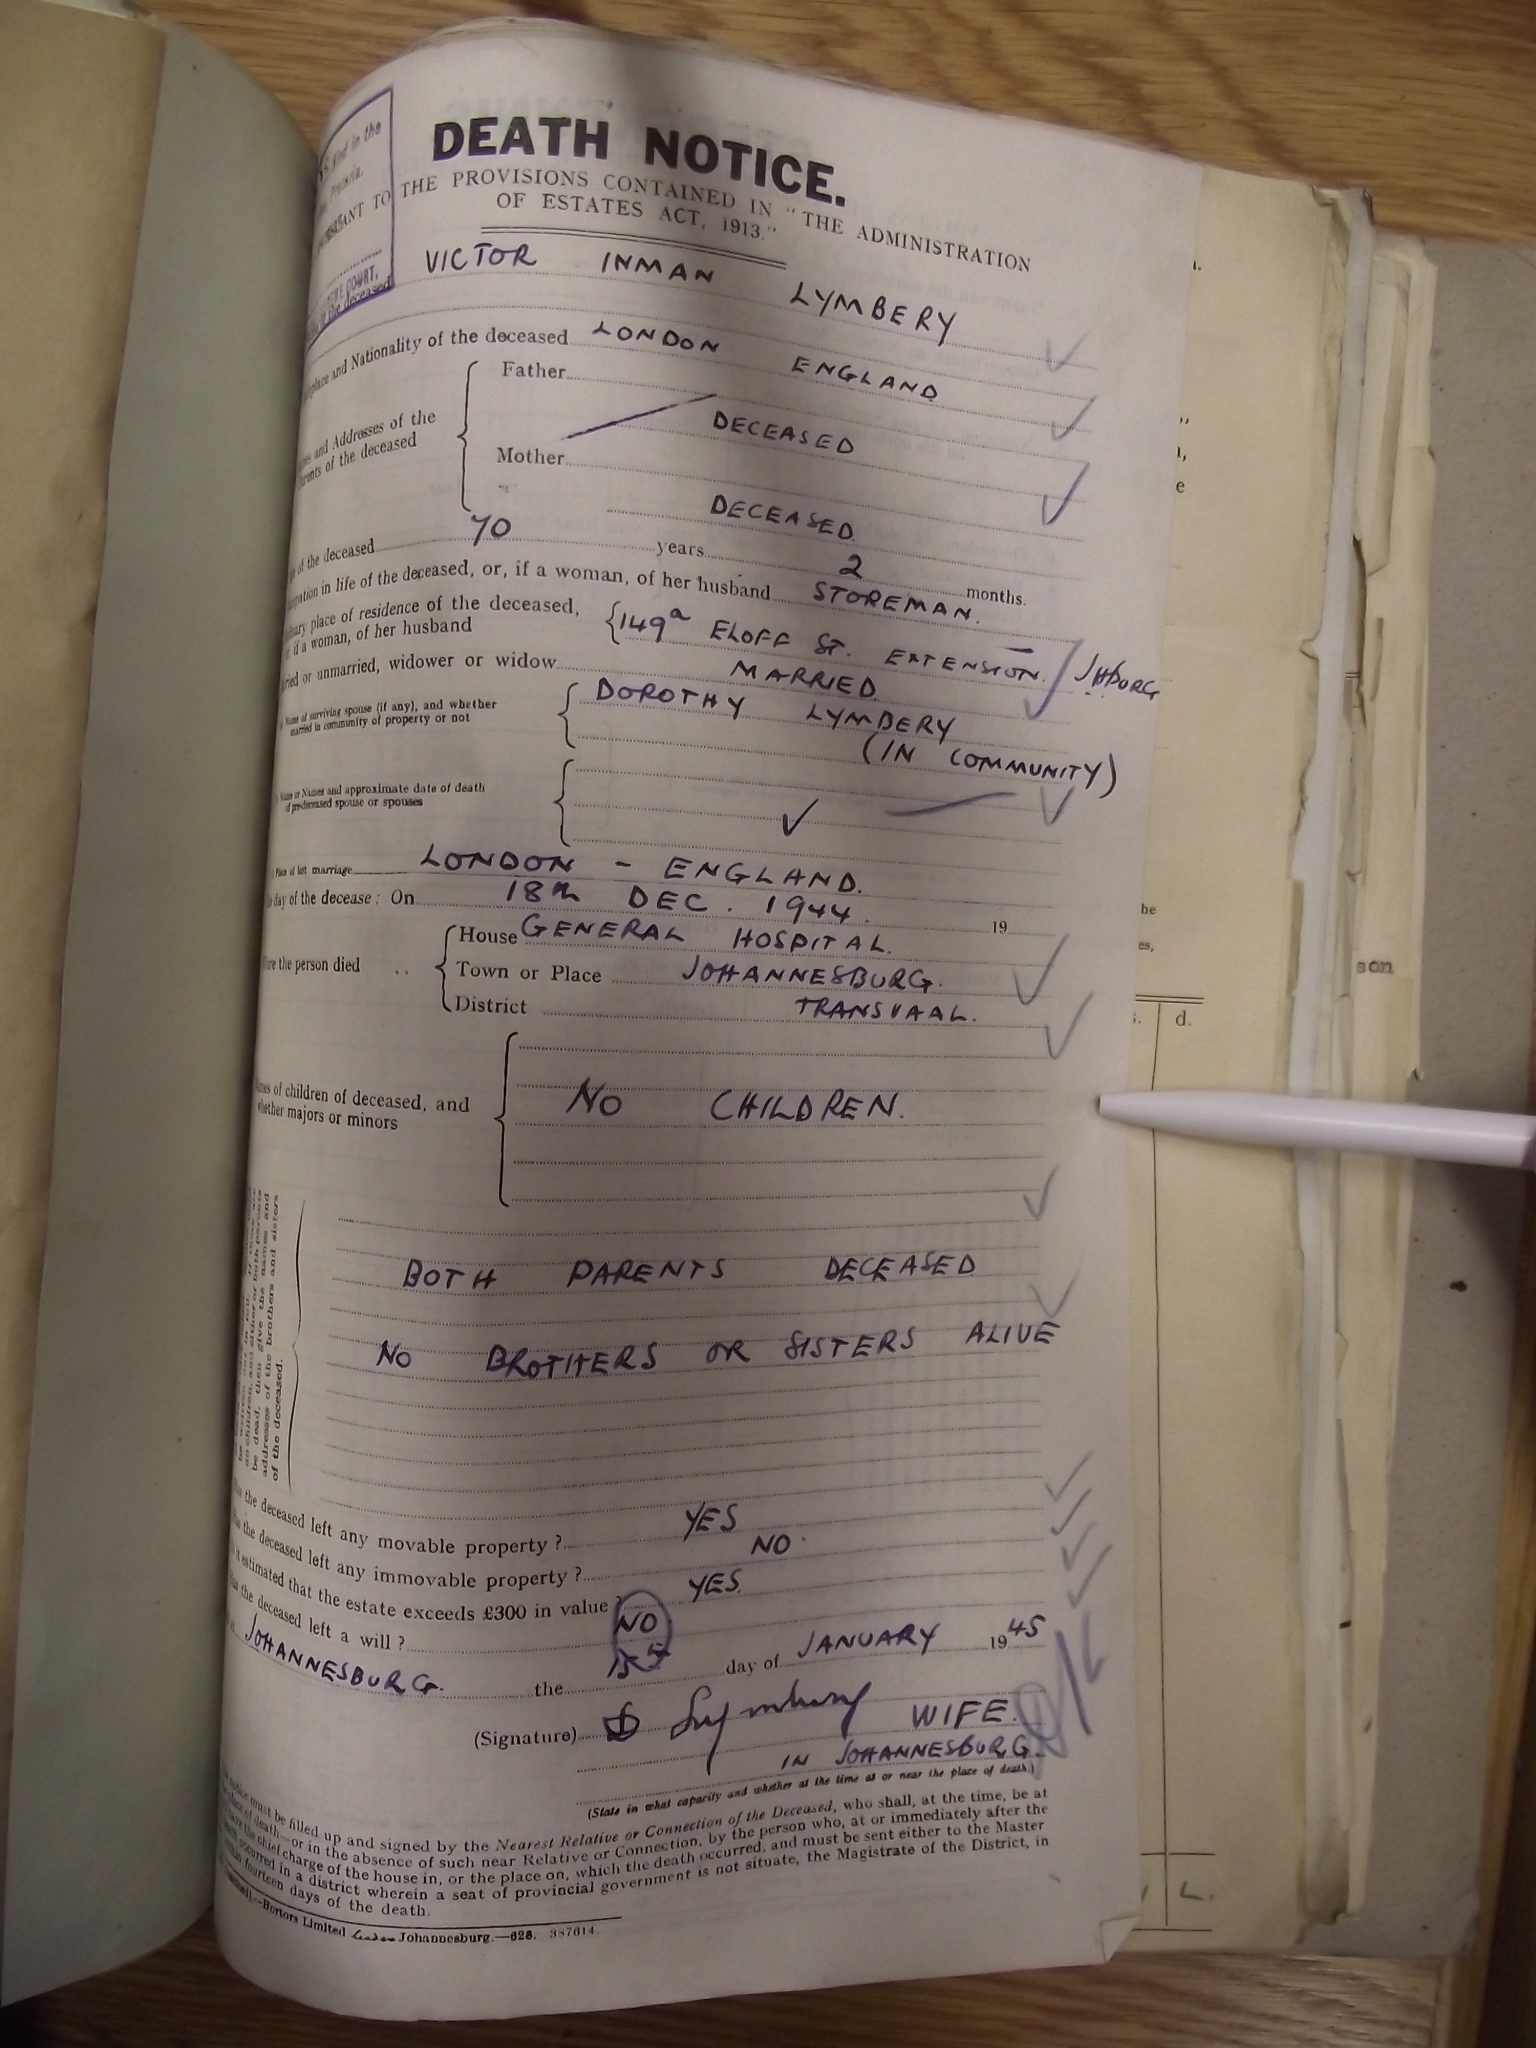 DEATH NOTICE.
THE PROVISIONS CONTAINED IN "THE ADMINISTRATION
OF ESTATES ACT, 1913."
filed in the
Pretoria.
COURT,
the deceased
VICTOR INMAN LYMBERY
and Nationality of the deceased LONDON ENGLAND
and Addresses of the
of the deceased
Father
DECEASED
Mother
DECEASED.
of the deceased 70 years 2 months.
in life of the deceased, or, if a woman, of her husband STOREMAN.
place of residence of the deceased,
if a woman, of her husband
149a ELOFF ST. EXTENSION. JHBURG
or unmarried, widower or widow MARRIED.
Name of surviving spouse (if any), and whether
married in community of property or not
DOROTHY LYMBERY
(IN COMMUNITY)
Name or Names and approximate date of death
of predeceased spouse or spouses
Place of last marriage LONDON - ENGLAND.
day of the decease: On 18th DEC. 1944. 19
the person died ..
House GENERAL HOSPITAL.
Town or Place JOHANNESBURG.
District TRANSVAAL.
of children of deceased, and
whether majors or minors
NO CHILDREN.
be dead, then give the names and
addresses of the brothers and sisters
of the deceased.
BOTH PARENTS DECEASED
NO BROTHERS OR SISTERS ALIVE
the deceased left any movable property? YES
the deceased left any immovable property? NO
estimated that the estate exceeds £300 in value? YES.
the deceased left a will? NO
JOHANNESBURG. the 15th day of JANUARY 1945
(Signature) D Lymbery WIFE.
IN JOHANNESBURG.
(State in what capacity and whether at the time at or near the place of death.)
must be filled up and signed by the Nearest Relative or Connection of the Deceased, who shall, at the time, be at
place of death—or in the absence of such near Relative or Connection, by the person who, at or immediately after the
the chief charge of the house in, or the place on, which the death occurred, and must be sent either to the Master
occurred in a district wherein a seat of provincial government is not situate, the Magistrate of the District, in
fourteen days of the death.
Hortors Limited Johannesburg.—628. 387614
he
es,
son
s. d.
L.